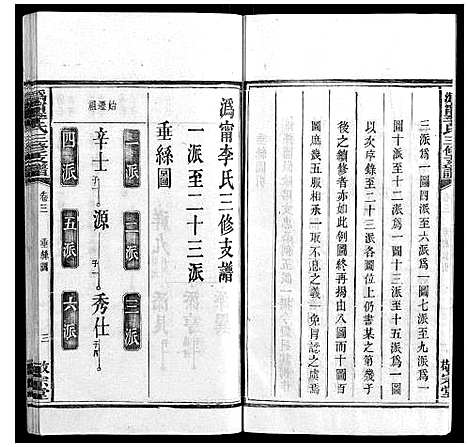 三派爲一圖三派至六派爲一圖七派至九派爲一
圖十派至十二派爲一圖十三派至十五派爲一圖
以次序錄至二十三派各圖位上仍書某之第幾子
後之續修者亦如此例圖終再揭由八圖而十圖百
圖庶幾五服相承一取不息之義一免冐認之虞焉
敬宗堂
潙甯李氏三修支譜
一派至二十三派
垂絲圖
始遷祖
一派 二派 三派
辛士 子一 源 子一 秀仕
四派 五派 六派
潙甯李氏三修支譜
卷三
垂絲圖
三
敬宗堂